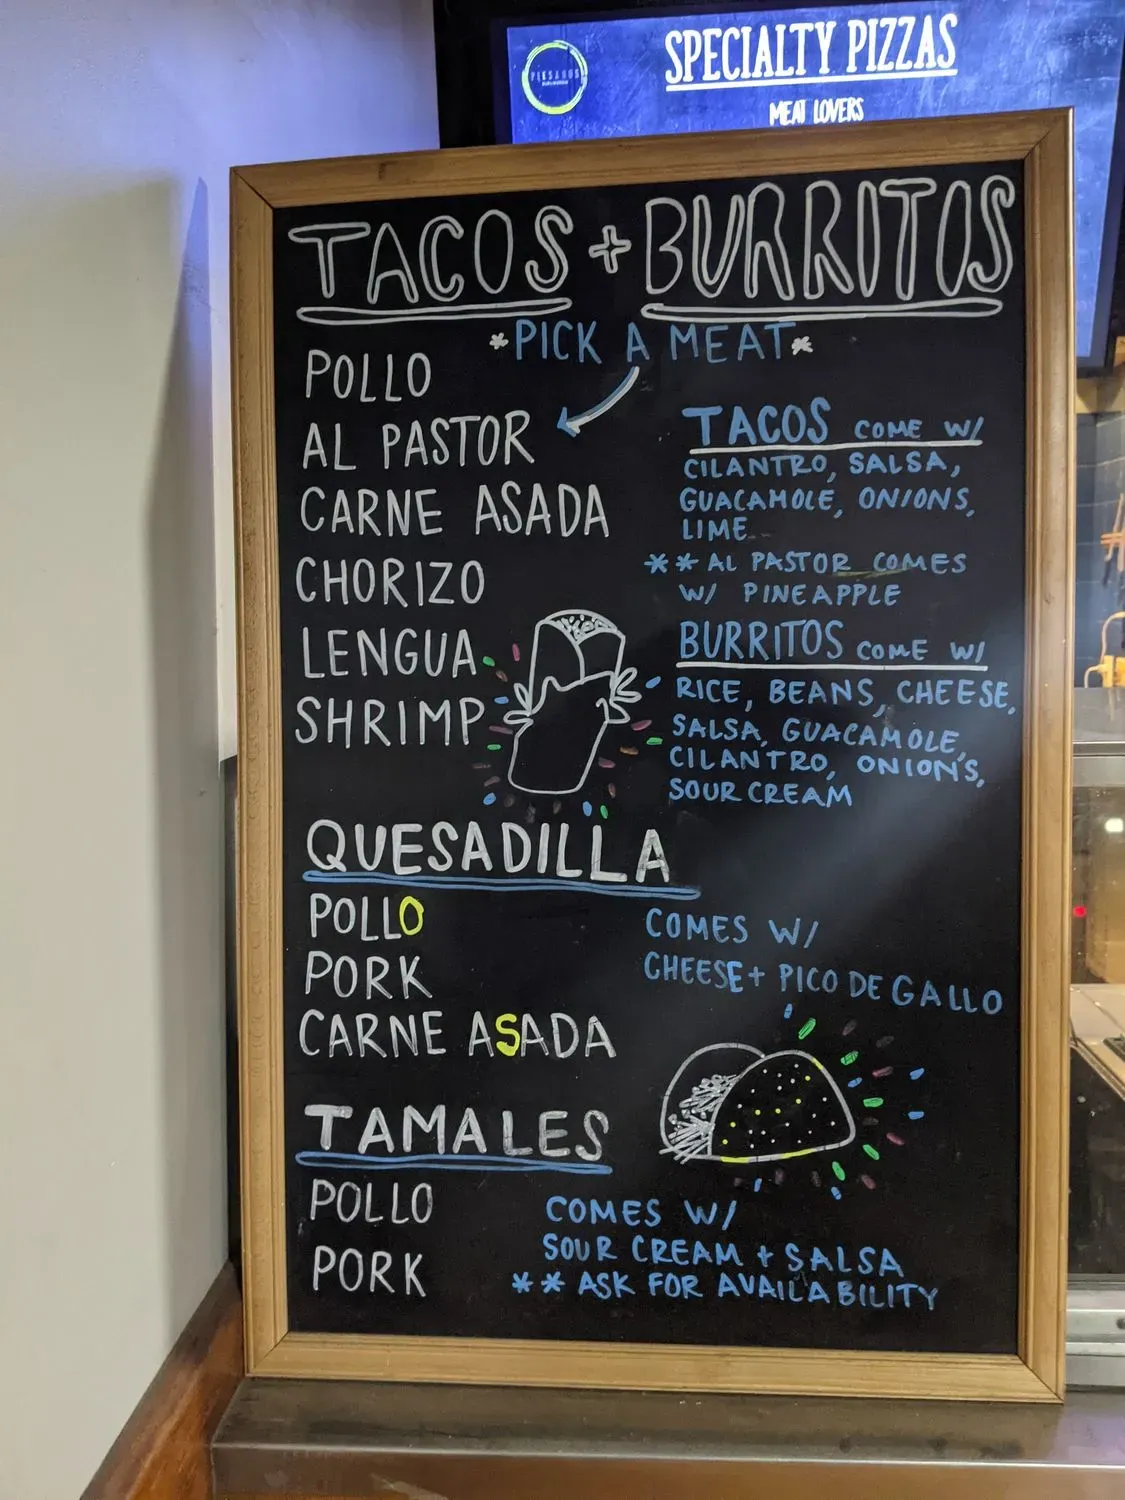 SPECIALTY PIZZAS
MEAT LOVERS
TACOS + BURRITOS
*PICK A MEAT*
POLLO
AL PASTOR
CARNE ASADA
CHORIZO
LENGUA
SHRIMP
TACOS COME W/
CILANTRO, SALSA,
GUACAMOLE, ONIONS,
LIME
** AL PASTOR COMES
W/ PINEAPPLE
BURRITOS COME W/
RICE, BEANS, CHEESE,
SALSA, GUACAMOLE,
CILANTRO, ONION'S,
SOUR CREAM
QUESADILLA
POLLO
PORK
CARNE ASADA
COMES W/
CHEESE + PICO DE GALLO
TAMALES
POLLO
PORK
COMES W/
SOUR CREAM + SALSA
** ASK FOR AVAILABILITY